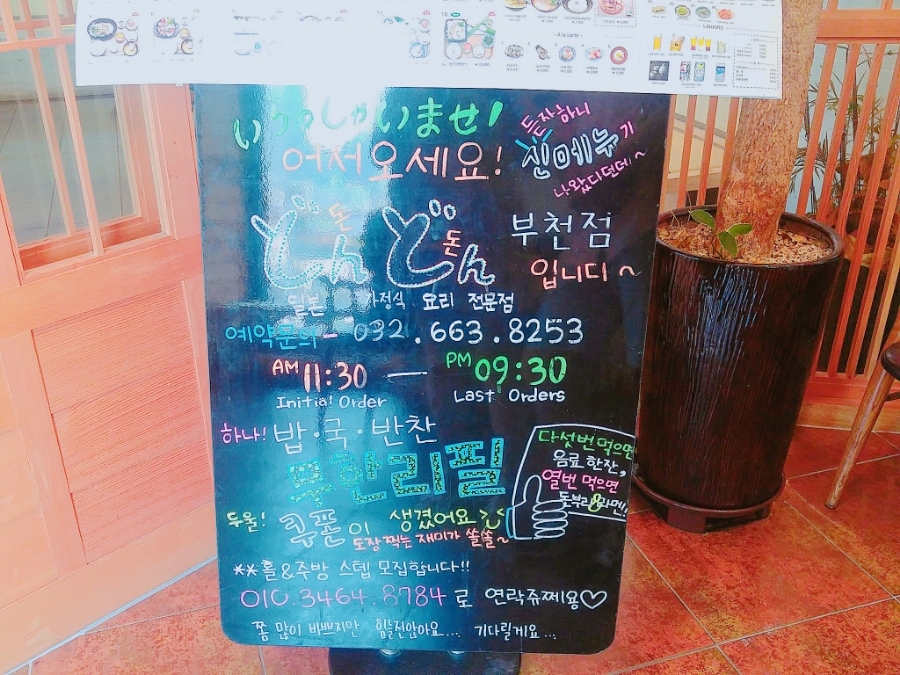 いらっしゃいませ!
어서오세요!
든자하니
신메뉴가
나왔디던데~
どん どん
돈 돈
부천점
입니디~
일본 가정식 요리 전문점
예약문의 - 032.663.8253
AM 11:30 — PM 09:30
Initial Order Last Orders
하나! 밥·국·반찬
무한리필
다섯번 먹으면
음료 한잔,
열번 먹으면
두울! 쿠폰이 생겼어요
도장 찍는 재미가 쏠쏠~
**홀&주방 스텝 모집합니다!!
010.3464.8784로 연락쥬쩨용♡
쫌 많이 바쁘지만 힘늘진않아요... 기다릴게요...